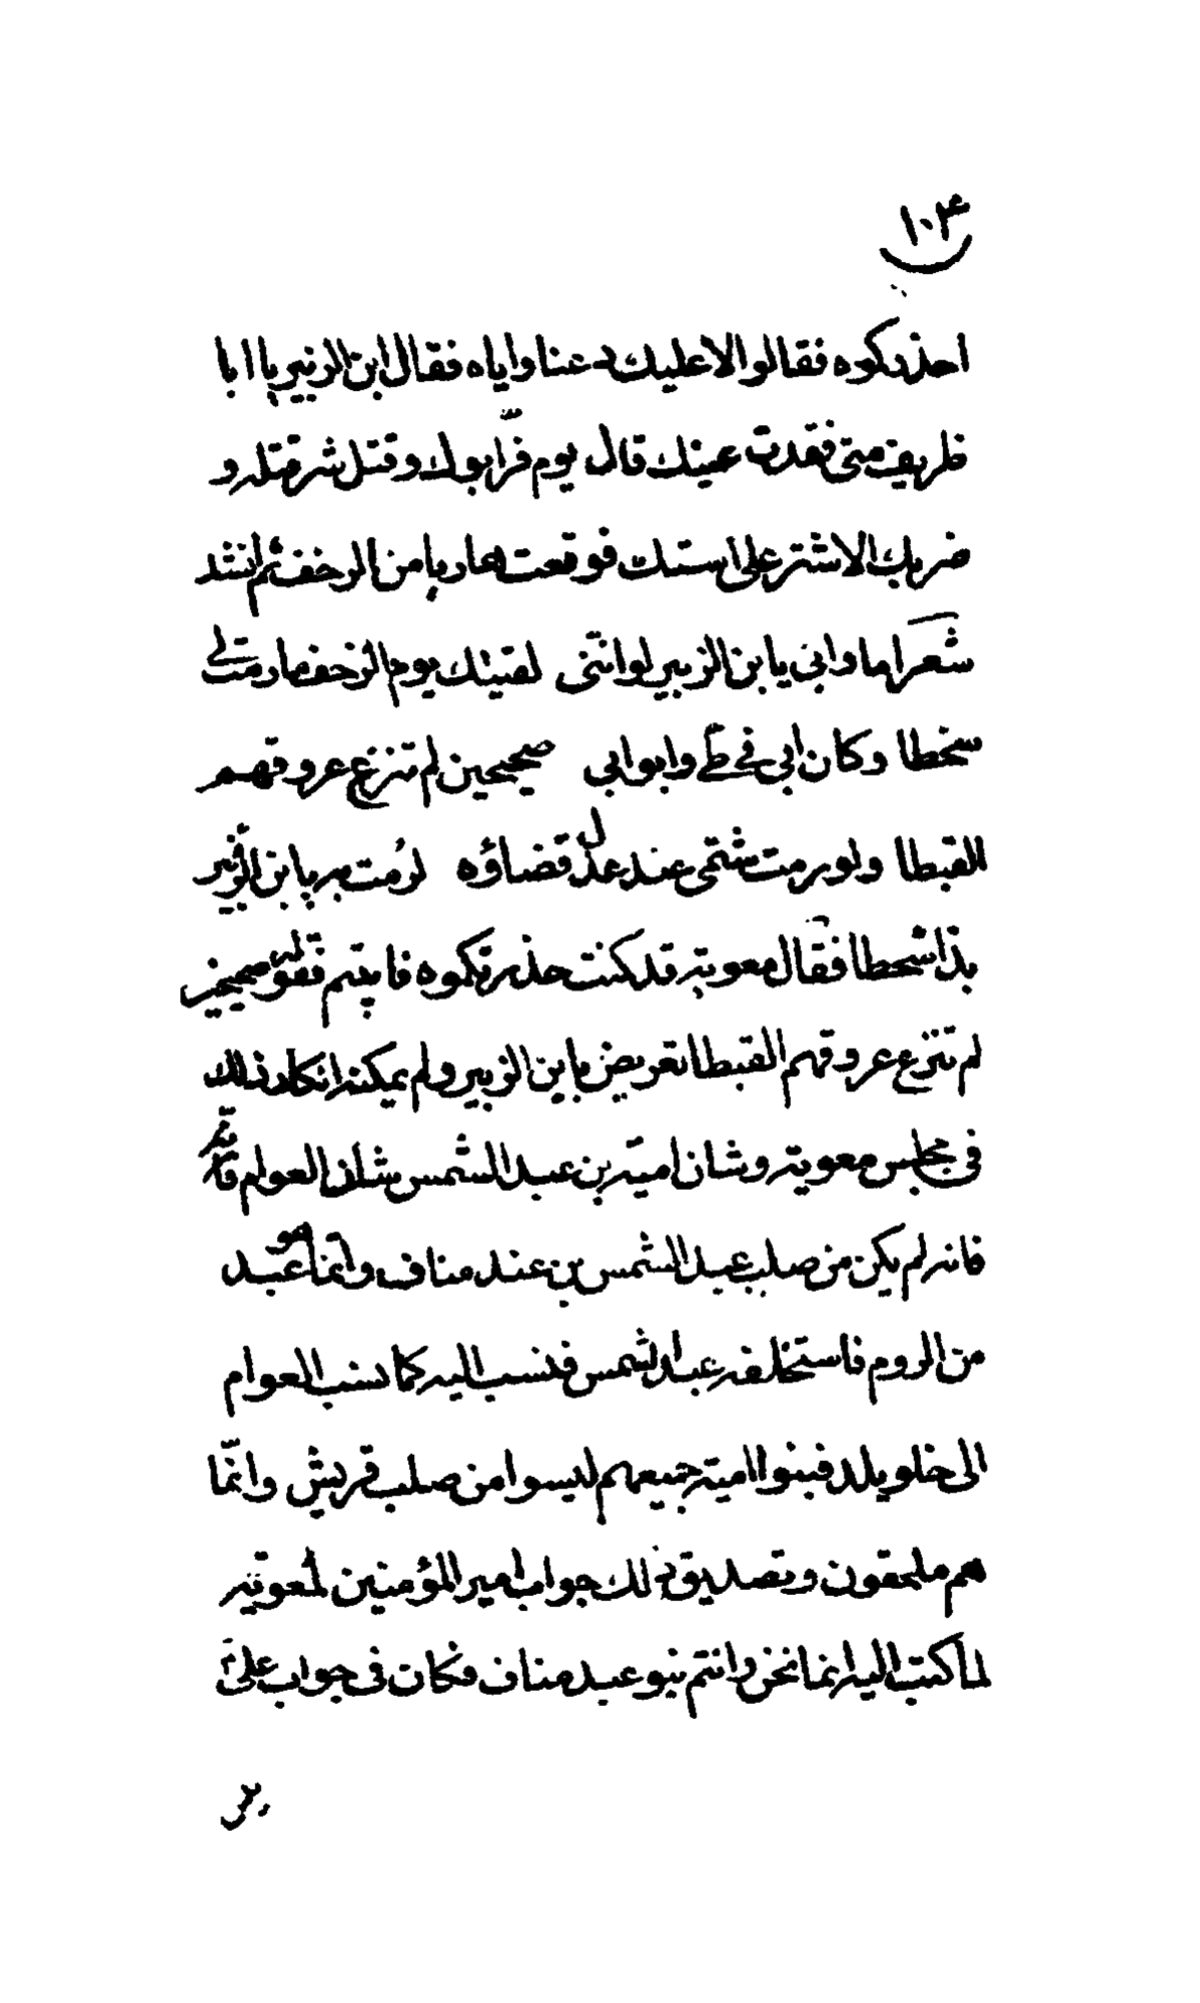 ١٠٤
احذركوه فقالوا لا عليك دعنا واياه فقال ابن الزبير يا ابا
ظريف متى فقدت عينك قال يوم فرّ ابوك وقتل شر قتله و
ضربك الاشتر على استك فوقعت هاربا من الزحف ثم انشد
شعر اما وابى يا بن الزبير لو انّنى لقيتك يوم الزحف ما رمت لى
سخطا وكان ابى فى طى وابو ابى صحيحين لم تنزع عروقهم
القبطا ولو رمت شتمى عند عدل قضاؤه لرمت به يا بن الزبير
بذا شحطا فقال معوية قد كنت حذرتكموه فابيتم فقوله صحيحين
لم تنزع عروقهم القبطا تعريض بابن الزبير ولم يمكنه انكار ذلك
فى مجلس معوية وشان امية بن عبد الشمس شان العوام
فانه لم يكن من صلب عبد الشمس بن عبد مناف وانّما هو عبد
من الروم فاستخلفه عبد الشمس فنسب اليه كما نسب العوام
الى خلويلد فبنوا امية جميعهم ليسوا من صلب قريش وانّما
هم ملحقون وتصديق ذلك جواب امير المؤمنين لمعوية
لما كتب اليه انما نحن وانتم بنو عبد مناف فكان فى جواب علىّ